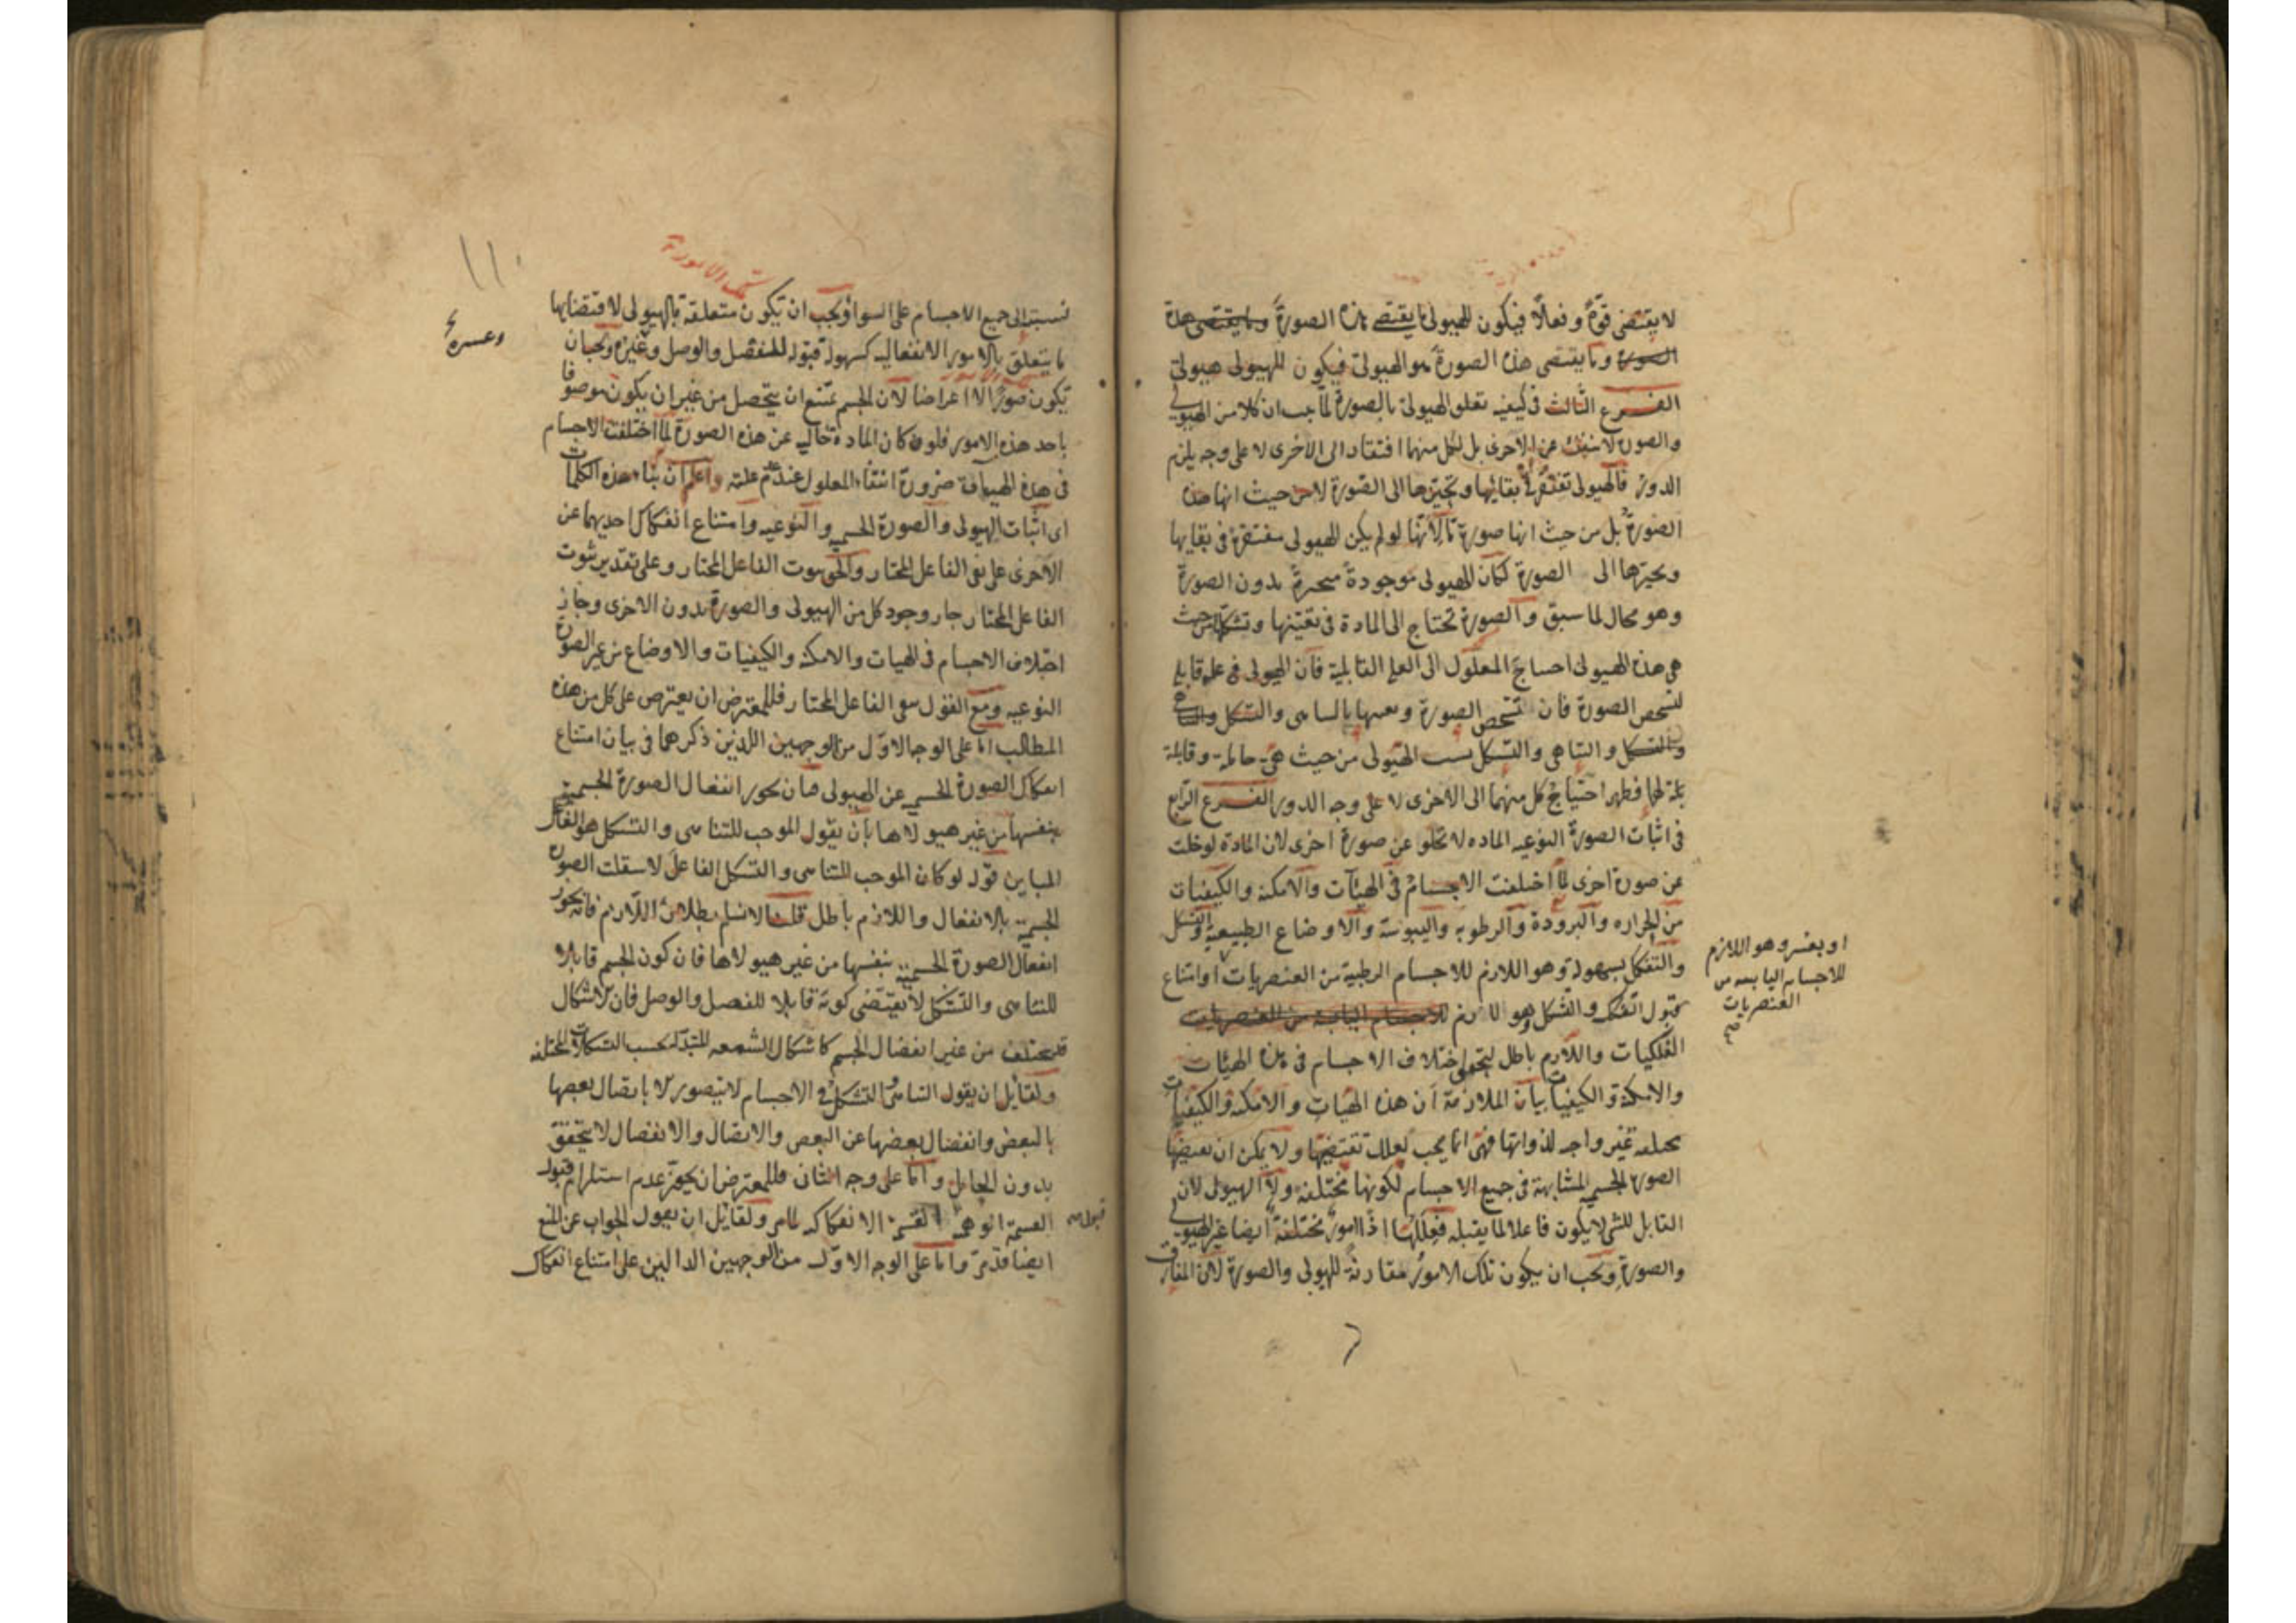 لا يقتضى قوة وفعلا فيكون للهيولى ما يقتضى هذه الصورة وما يقتضى هذه
الصورة وما يقتضى هذه الصورة هو الهيولى فيكون للهيولى هيولى
الفرع الثالث فى كيفية تعلق الهيولى بالصورة لما يجب ان كلا من الهيولى
والصورة لا ينفك عن الاخرى بل لكل منهما افتقار الى الاخرى لا على وجه يلزم
الدور فالهيولى تفتقر فى بقائها وتحيزها الى الصورة لا من حيث انها هذه
الصورة بل من حيث انها صورة ما لانها لو لم يكن الهيولى مفتقرة فى بقايها
وتحيزها الى الصورة لكان الهيولى موجودة متحيزة بدون الصورة
وهو محال لما سبق والصورة تحتاج الى المادة فى تعينها وتشكلها من حيث
هى هذه الهيولى احتياج المعلول الى العلة القابلية فان الهيولى هى علة قابلة
لتشخص الصورة فان تشخص الصورة وتعينها بالتناهى والتشكل والتناهى
والتشكل والتناهى والتشكل بسبب الهيولى من حيث هى حاملة وقابلة
لهما فظهر احتياج كل منهما الى الاخرى لا على وجه الدور الفرع الرابع
فى اثبات الصورة النوعيه الماده لا تخلو عن صورة اخرى لان المادة لو خلت
عن صورة اخرى لما اختلفت الاجسام فى الهيآت والامكنة والكيفيات
من الحراره والبرودة والرطوبه واليبوسة والاوضاع الطبيعية والتشكل
والتفكك بسهولة وهو اللازم للاجسام الرطبة من العنصريات او امتناع
قبول التفكك والتشكل وهو اللازم للاجسام اليابسة من العنصريات
الفلكيات واللازم باطل لتحقق اختلاف الاجسام فى هذه الهيئات
والامكنة والكيفيات بيان الملازمة ان هذه الهيات والامكنة والكيفيات
مختلفة غير واجبه لذواتها فهى انما يجب لعلل تقتضيها ولا يمكن ان تقتضيها
الصورة الجسمية المتشابهة فى جميع الاجسام لكونها مختلفة ولا الهيولى لان
القابل للشى لا يكون فاعلا لما يقبله فعللها اذا امور مختلفة ايضا غير الهيولى
والصورة ويجب ان يكون تلك الامور مقارنة للهيولى والصورة لان المفارق
او بعسر وهو اللازم
للاجسام اليابسه من
العنصريات
صح
نسبته الى جميع الاجسام على السواء ويجب ان تكون متعلقة بالهيولى لاقتضايها
ما يتعلق بالامور الانفعاليه كسهولة قبول المنفصل والوصل وغيره ويجب ان
وعسره
تكون صورا لا اعراضا لان الجسم يمتنع ان يتحصل من غير ان يكون موصوفا
باحد هذه الامور فلو كان المادة خاليه عن هذه الصورة لما اختلفت الاجسام
فى هذه الهيآت ضرورة انتفاء المعلول عند عدم علته واعلم ان بناء هذه الكلمات
اى اثبات الهيولى والصورة الجسمية والنوعيه وامتناع انفكاك احديهما عن
الاخرى على نفى الفاعل المختار والحق ثبوت الفاعل المختار وعلى تقدير ثبوت
الفاعل المختار جاز وجود كل من الهيولى والصورة بدون الاخرى وجاز
اختلاف الاجسام فى الهيات والامكنة والكيفيات والاوضاع من غير الصورة
النوعيه ومع القول بنفى الفاعل المختار فللمعترض ان يعترض على كل من هذه
المطالب اما على الوجه الاول من الوجهين اللذين ذكرهما فى بيان امتناع
انفكاك الصورة الجسمية عن الهيولى فبان يجوز انفعال الصورة الجسمية
بنفسها من غير هيولاها بان يقول الموجب للتناهى والتشكل هو الفاعل
المباين قوله لو كان الموجب للتناهى والتشكل الفاعل لاستقلت الصورة
الجسمية بالانفعال واللازم باطل قلنا لا نسلم بطلان اللازم فانه يجوز
انفعال الصورة الجسمية بنفسها من غير هيولاها فان كون الجسم قابلا
للتناهى والتشكل لا يقتضى كونه قابلا للفصل والوصل فان الاشكال
قد يختلف من غير انفصال الجسم كاشكال الشمعه المتبدلة بحسب التشكلات المختلفه
ولقايل ان يقول التناهى والتشكل فى الاجسام لا يتصور الا باتصال بعضها
بالبعض وانفصال بعضها عن البعض والاتصال والانفصال لا يتحقق
بدون الحامل واما على وجه الثانى فللمعترض ان يجوز عدم استلزام قبول
القسمة الوهمية القسمة الانفكاكيه لما مر ولقايل ان يقول الجواب عن المنع
قبول
ايضا قد مر واما على الوجه الاول من الوجهين الدالين على امتناع انفكاك